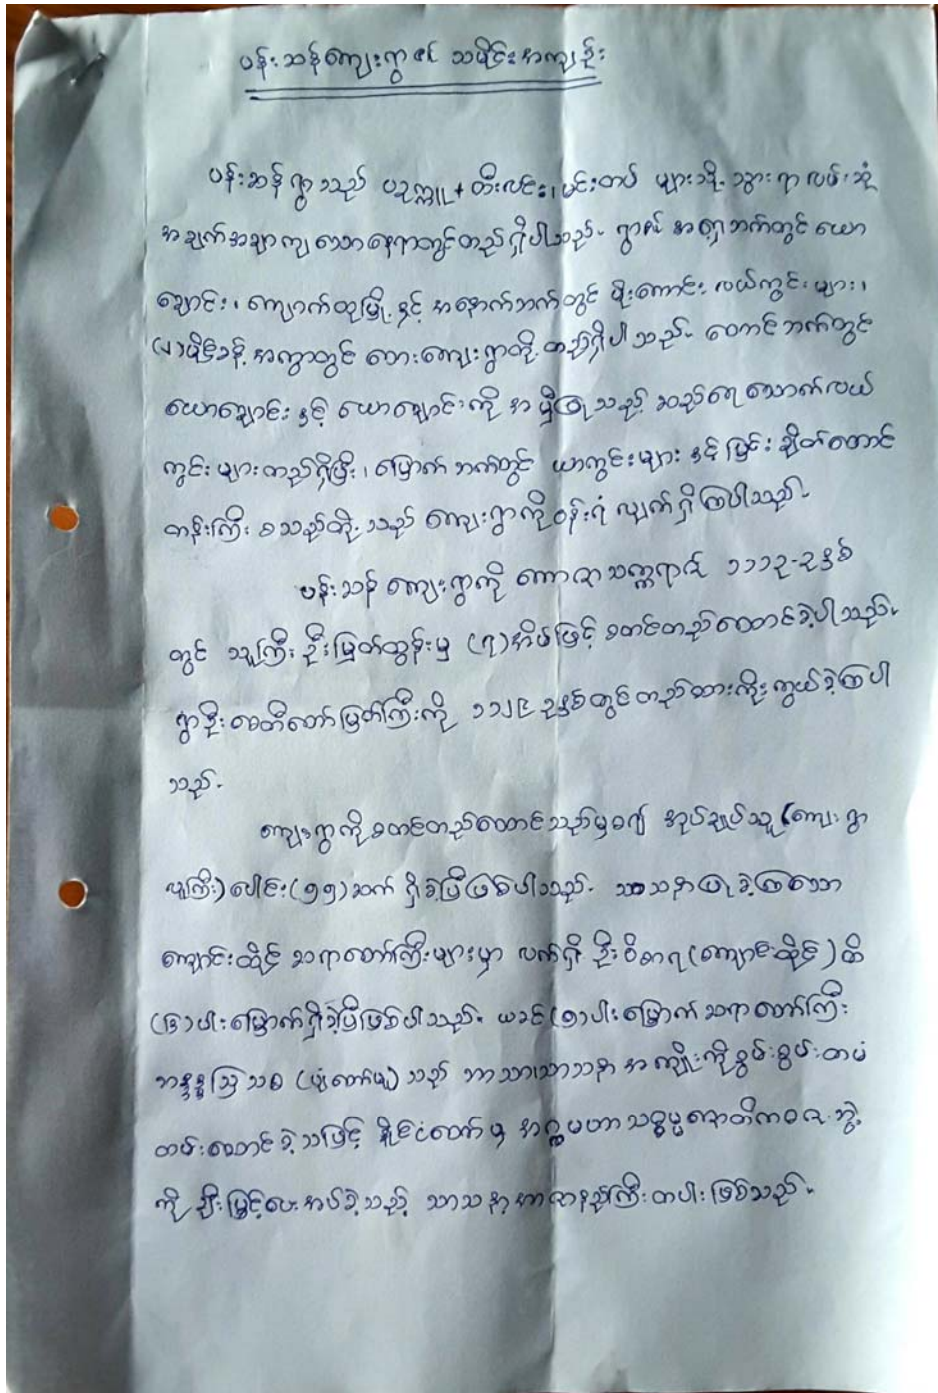 ပန်းဆန်ကျေးရွာ၏ သမိုင်းအကျဉ်း
ပန်းဆန်ရွာသည် ပဥက္ကူ + ထီးလင်း၊ မင်းတပ် များသို့ သွားရာလမ်းဆုံ
အချက်အချာကျသောနေရာတွင်တည်ရှိပါသည်။ ရွာ၏ အရှေ့ဘက်တွင် ယော
ချောင်း၊ ကျောက်ထုမြို့နှင့် အနောက်ဘက်တွင် မိုးကောင်း လယ်ကွင်းများ၊
(၂)မိုင်ခန့် အကွာတွင် ဘေးကျေးရွာတို့ တည်ရှိပါသည်။ တောင်ဘက်တွင်
ယောချောင်းနှင့် ယောချောင်းကို အမှီပြုသည့် ဆည်ရေသောက်လယ်
ကွင်းများတည်ရှိပြီး၊ မြောက်ဘက်တွင် ယာကွင်းများနှင့် မြင်းချိတ်တောင်
တန်းကြီး စသည်တို့သည် ကျေးရွာကိုဝန်းရံ လျက်ရှိကြပါသည်။
ပန်းဆန် ကျေးရွာကို ကောဇာသက္ကရာဇ် ၁၁၁၃-ခုနှစ်
တွင် သူကြီး ဦးမြတ်ထွန်းမှ (၇)အိမ်ဖြင့် စတင်တည်ထောင်ခဲ့ပါသည်။
ရွာဦးစေတီတော်မြတ်ကြီးကို ၁၁၂၄ ခုနှစ်တွင်တည်ထားကိုးကွယ်ခဲ့ကြပါ
သည်။
ကျေးရွာကိုစတင်တည်ထောင်သည်မှစ၍ အုပ်ချုပ်သူ (ကျေးရွာ
လူကြီး) ပေါင်း (၅၅)ဆက် ရှိခဲ့ပြီဖြစ်ပါသည်။ သာသနာပြုခဲ့ကြသော
ကျောင်းထိုင် ဆရာတော်ကြီးများမှာ လက်ရှိ ဦးဝိစာရ (ကျောင်းထိုင်) ထိ
(၆)ပါးမြောက်ရှိခဲ့ပြီဖြစ်ပါသည်။ ယခင်(၅)ပါးမြောက် ဆရာတော်ကြီး
ဘဒ္ဒန္တဩသဓ (ပျံတော်မူ) သည် ဘာသာသာသနာ အကျိုးကိုစွမ်းစွမ်းတမံ
ထမ်းဆောင်ခဲ့သဖြင့် နိုင်ငံတော်မှ အဂ္ဂမဟာသဒ္ဓမ္မဇောတိကဓဇ ဘွဲ့
ကို ချီးမြှင့်ပေးအပ်ခဲ့သည့် သာသနာ့အာဇာနည်ကြီးတပါး ဖြစ်သည်။